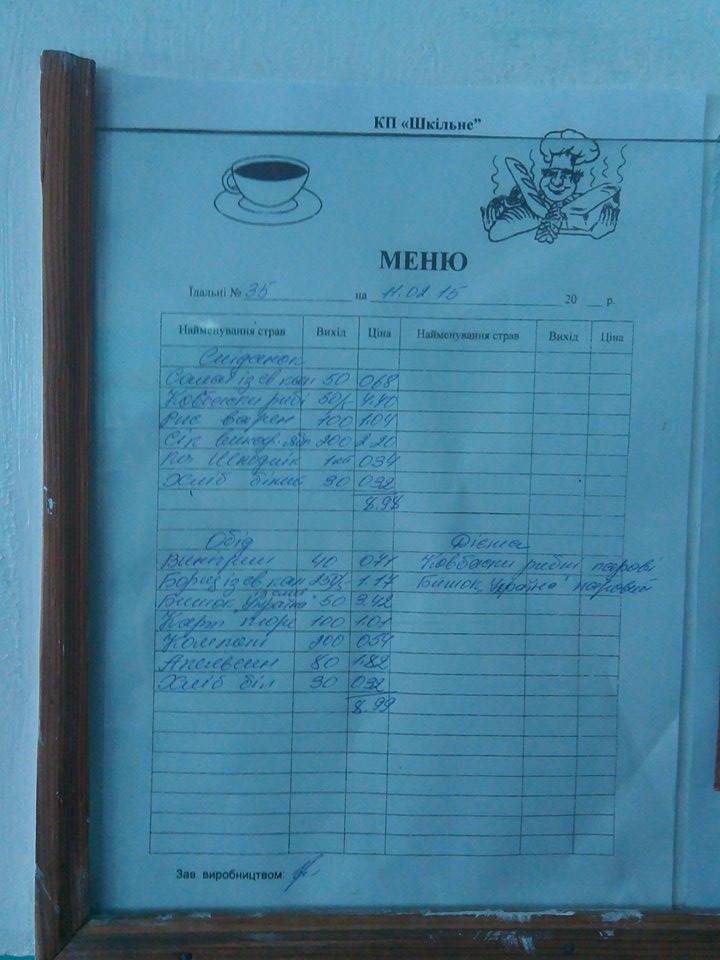 КП «Шкільне”
МЕНЮ
Їдальні № 35 на 11.02 15 20 __ р.
Найменування страв Вихід Ціна Найменування страв Вихід Ціна
Сніданок
Салат із св кап 50 068
Ковбаски рибні 50/5 4.40
Рис варен 100 1.04
Сік виногр. ябл 200 2.20
034
Хліб білий 30 032
8.98
Обід Дієта
Вінегрет 40 071 Ковбаски рибні парові
Борщ із св кап 250/5 1.17 Биток „Україна" паровий
Биток „Україна" 50 3.42
Карт пюре 100 1.01
Компот 200 054
Апельсин 80 1.82
Хліб біл 30 032
8.99
Зав. виробництвом: